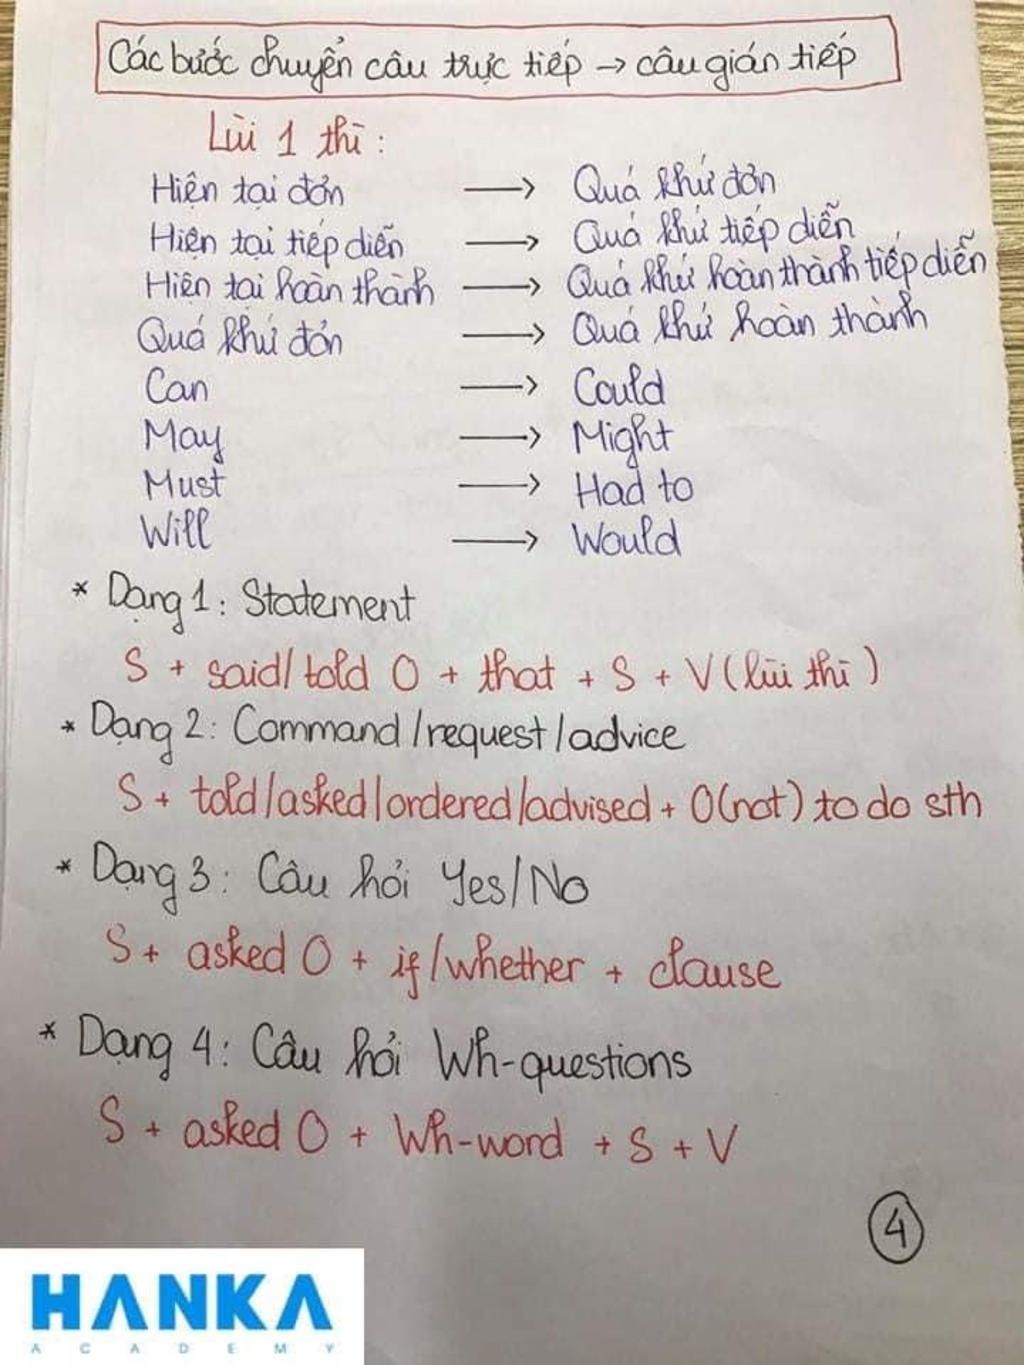 Các bước chuyển câu trực tiếp → câu gián tiếp
Lùi 1 thì:
Hiện tại đơn → Quá khứ đơn
Hiện tại tiếp diễn → Quá khứ tiếp diễn
Hiện tại hoàn thành → Quá khứ hoàn thành tiếp diễn
Quá khứ đơn → Quá khứ hoàn thành
Can → Could
May → Might
Must → Had to
Will → Would
* Dạng 1: Statement
S + said/told O + that + S + V (lùi thì)
* Dạng 2: Command/request/advice
S + told/asked/ordered/advised + O (not) to do sth
* Dạng 3: Câu hỏi Yes/No
S + asked O + if/whether + clause
* Dạng 4: Câu hỏi Wh-questions
S + asked O + Wh-word + S + V
4
HANKA
ACADEMY